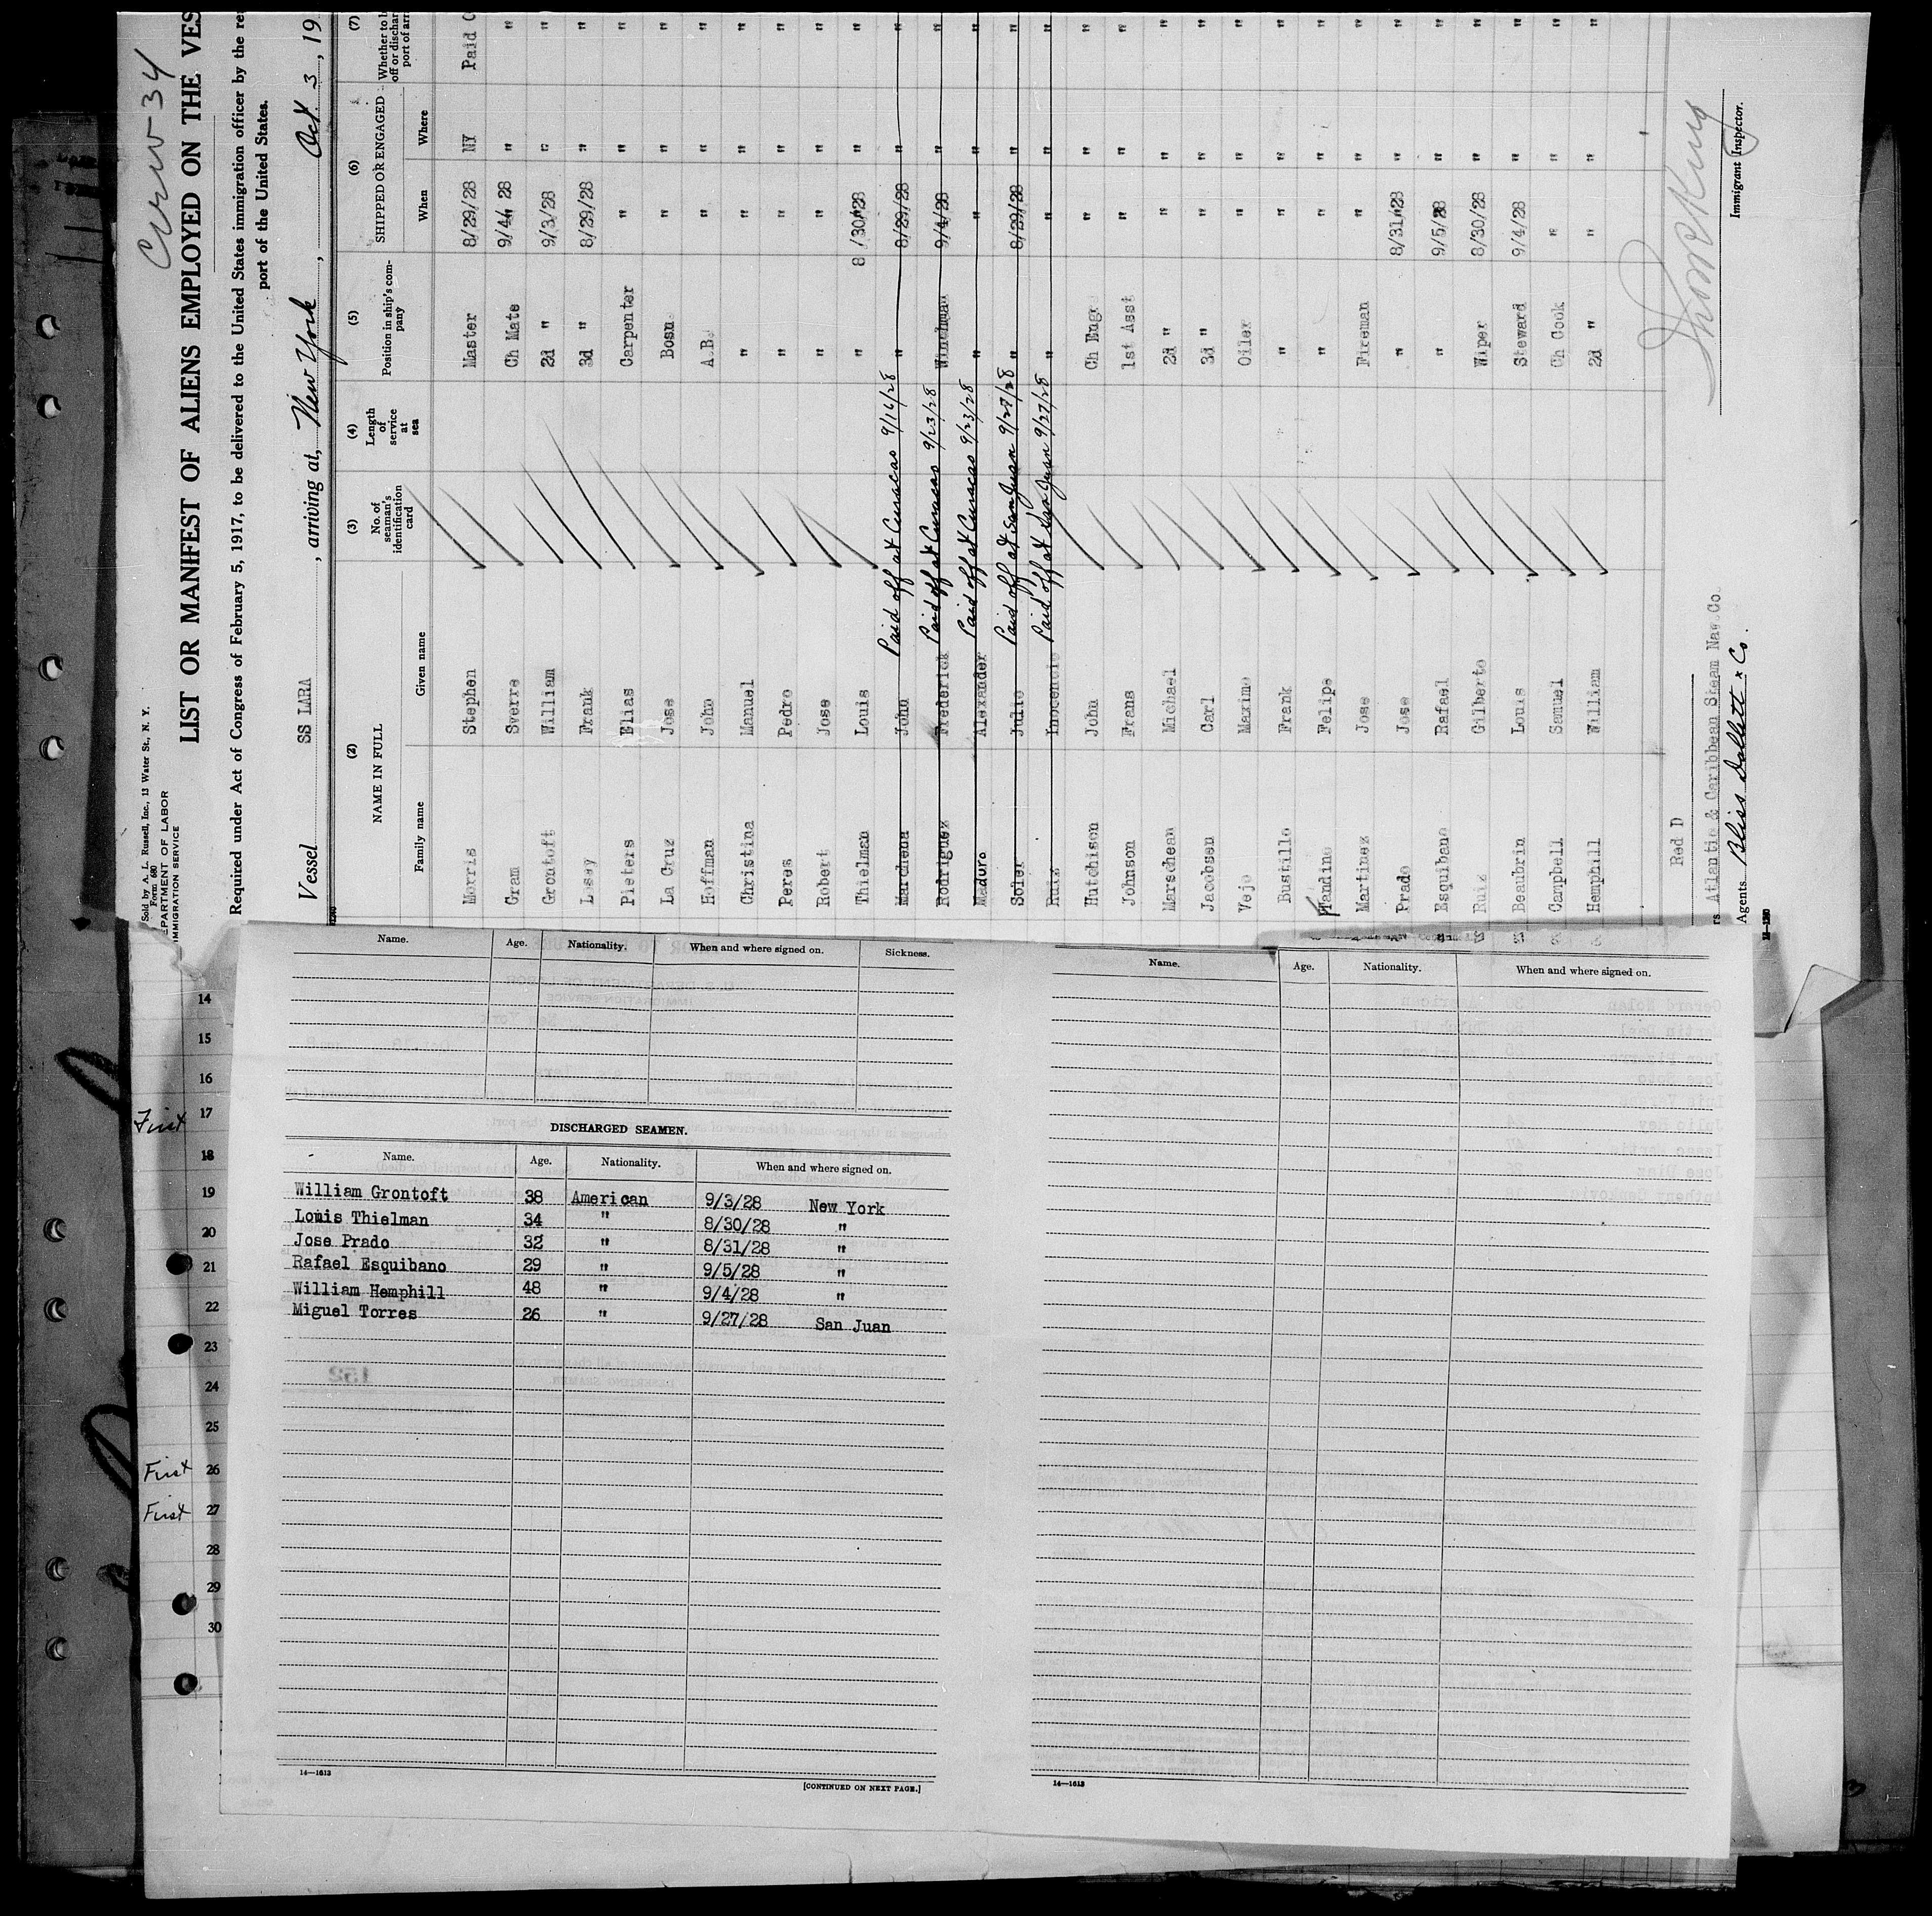 Crew-34
Sold by A. L. Russell, Inc., 13 Water St., N. Y.
Form 680
EPARTMENT OF LABOR
IMMIGRATION SERVICE
LIST OR MANIFEST OF ALIENS EMPLOYED ON THE VES
Required under Act of Congress of February 5, 1917, to be delivered to the United States immigration officer by the re
port of the United States.
Vessel SS LARA , arriving at, New York , Oct. 3 , 19
(2) (3) (4) (5) (6) (7)
NAME IN FULL No. of seaman's identification card Length of service at sea Position in ship's company SHIPPED OR ENGAGED Whether to b off or dischar port of arr
Family name Given name When Where
Morris Stephen Master 8/29/28 NY Paid O
Gram Sverre Ch Mate 9/4/ 28 " "
Grontoft William 2d " 9/3/28 " "
Losey Frank 3d " 8/29/28 " "
Pieters Elias Carpenter " " "
La Cruz Jose Bosn " " "
Hoffman John A.B. " " "
Christina Manuel " " " "
Peres Pedro " " " "
Robert Jose " " " "
Thielman Louis " 8/30/28 " "
Marchena John Paid off at Curacao 9/16/28 " 8/29/28 " "
Rodriguez Frederick Paid off at Curacao 9/23/28 Winchman 9/4/28 " "
Maduro Alexander Paid off at Curacao 9/23/28 " " " "
Soler Julio Paid off at San Juan 9/27/28 " 8/29/28 " "
Ruiz Inocencio Paid off at San Juan 9/27/28 " " " "
Hutchison John Ch Engr " " "
Johnson Frans 1st Asst " " "
Marschean Michael 2d " " " "
Jacobsen Carl 3d " " " "
Vejo Maximo Oiler " " "
Bustillo Frank " " " "
Fandino Felipe " " " "
Martinez Jose Fireman " " "
Prado Jose " 8/31/28 " "
Esquibano Rafael " 9/5/28 " "
Ruiz Gilberto Wiper 8/30/28 " "
Beaubrin Louis Steward 9/4/28 " "
Campbell Samuel Ch Cook " " "
Hemphill William 2d " " " "
Red D
rs Atlantic & Caribbean Steam Nav. Co.
Agents Bliss Dallett & Co.
Immigrant Inspector.
14
15
16
First 17
18
19
20
21
22
23
24
25
First 26
First 27
28
29
30
Name. Age. Nationality. When and where signed on. Sickness.
DISCHARGED SEAMEN.
Name. Age. Nationality. When and where signed on.
William Grontoft 38 American 9/3/28 New York
Louis Thielman 34 " 8/30/28 "
Jose Prado 32 " 8/31/28 "
Rafael Esquibano 29 " 9/5/28 "
William Hemphill 48 " 9/4/28 "
Miguel Torres 26 " 9/27/28 San Juan
14—1613 [CONTINUED ON NEXT PAGE.]
Name. Age. Nationality. When and where signed on.
14—1613